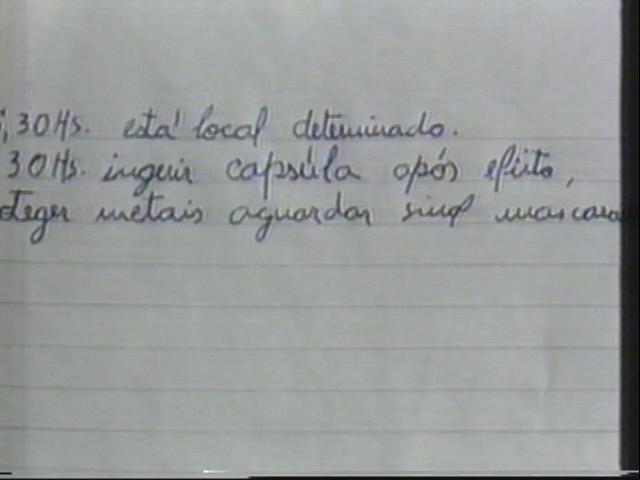 ,30 Hs. está local determinado.
30 Hs. inguir capsúla após efeito,
teger metais aguardar sinal mascara